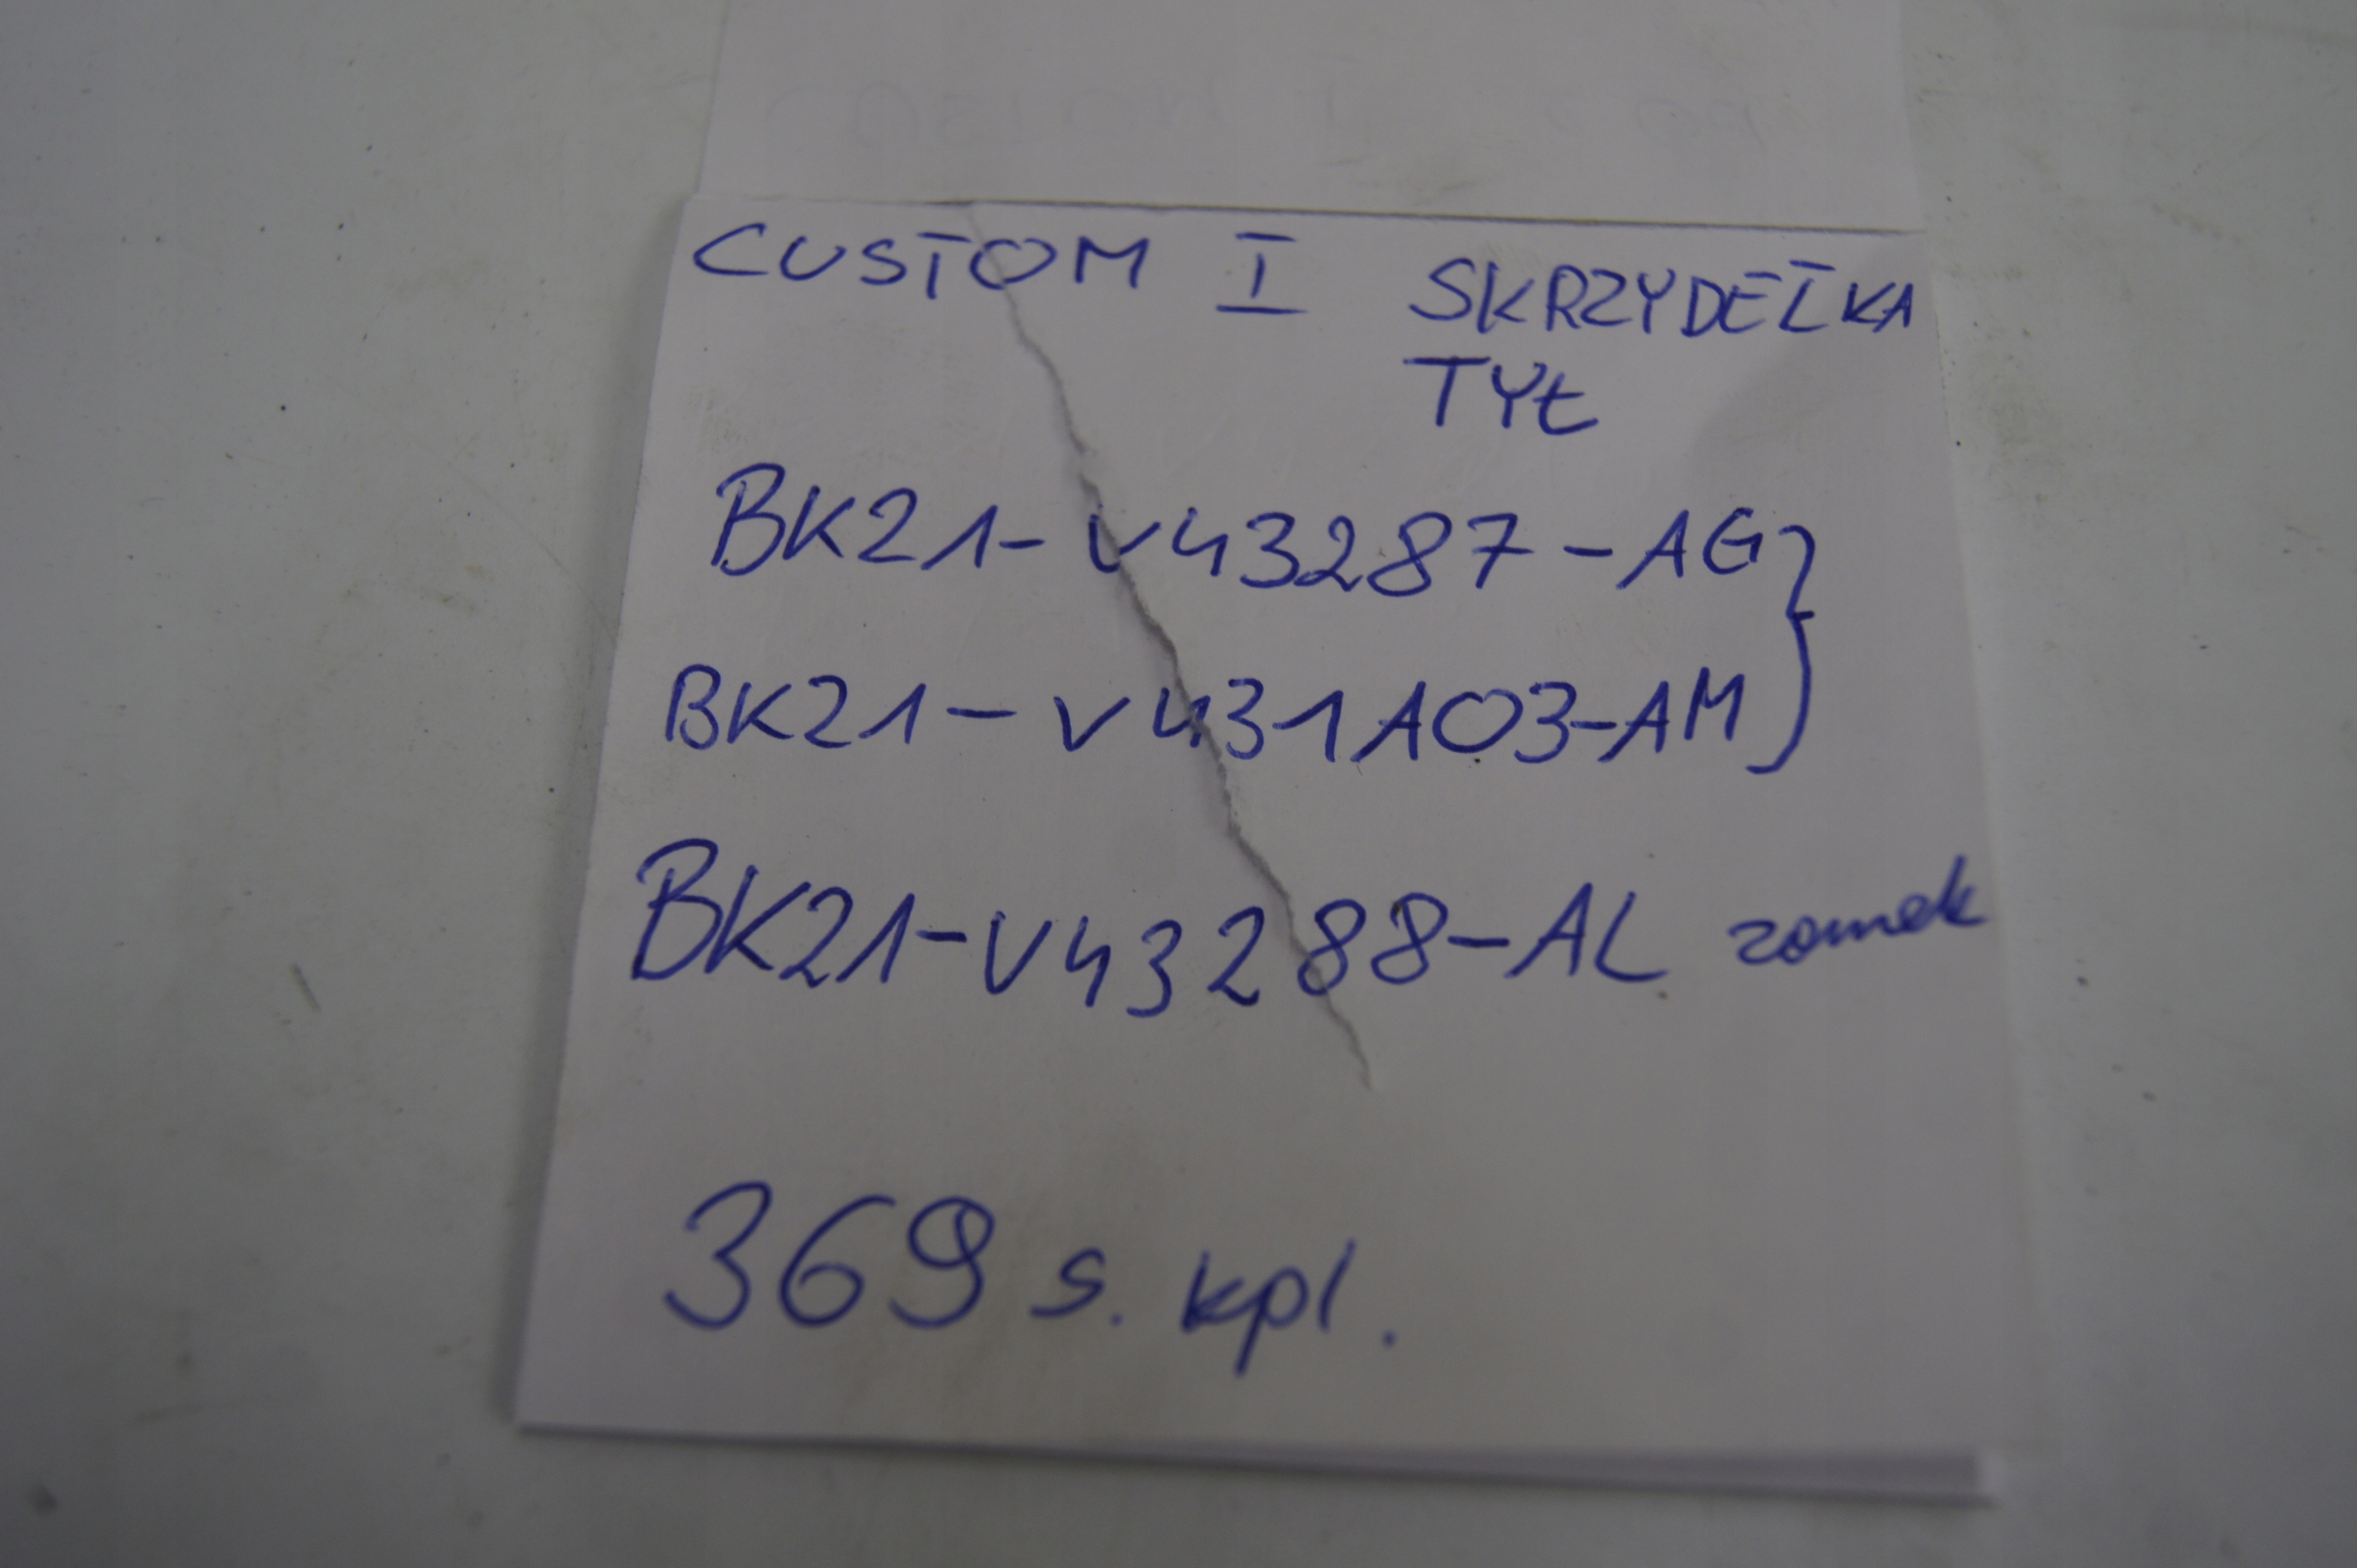 CUSTOM I SKRZYDEŁKA
TYŁ
BK21-V43287-AG }
BK21-V431A03-AM
BK21-V43288-AL zamek
369 s. kpl.